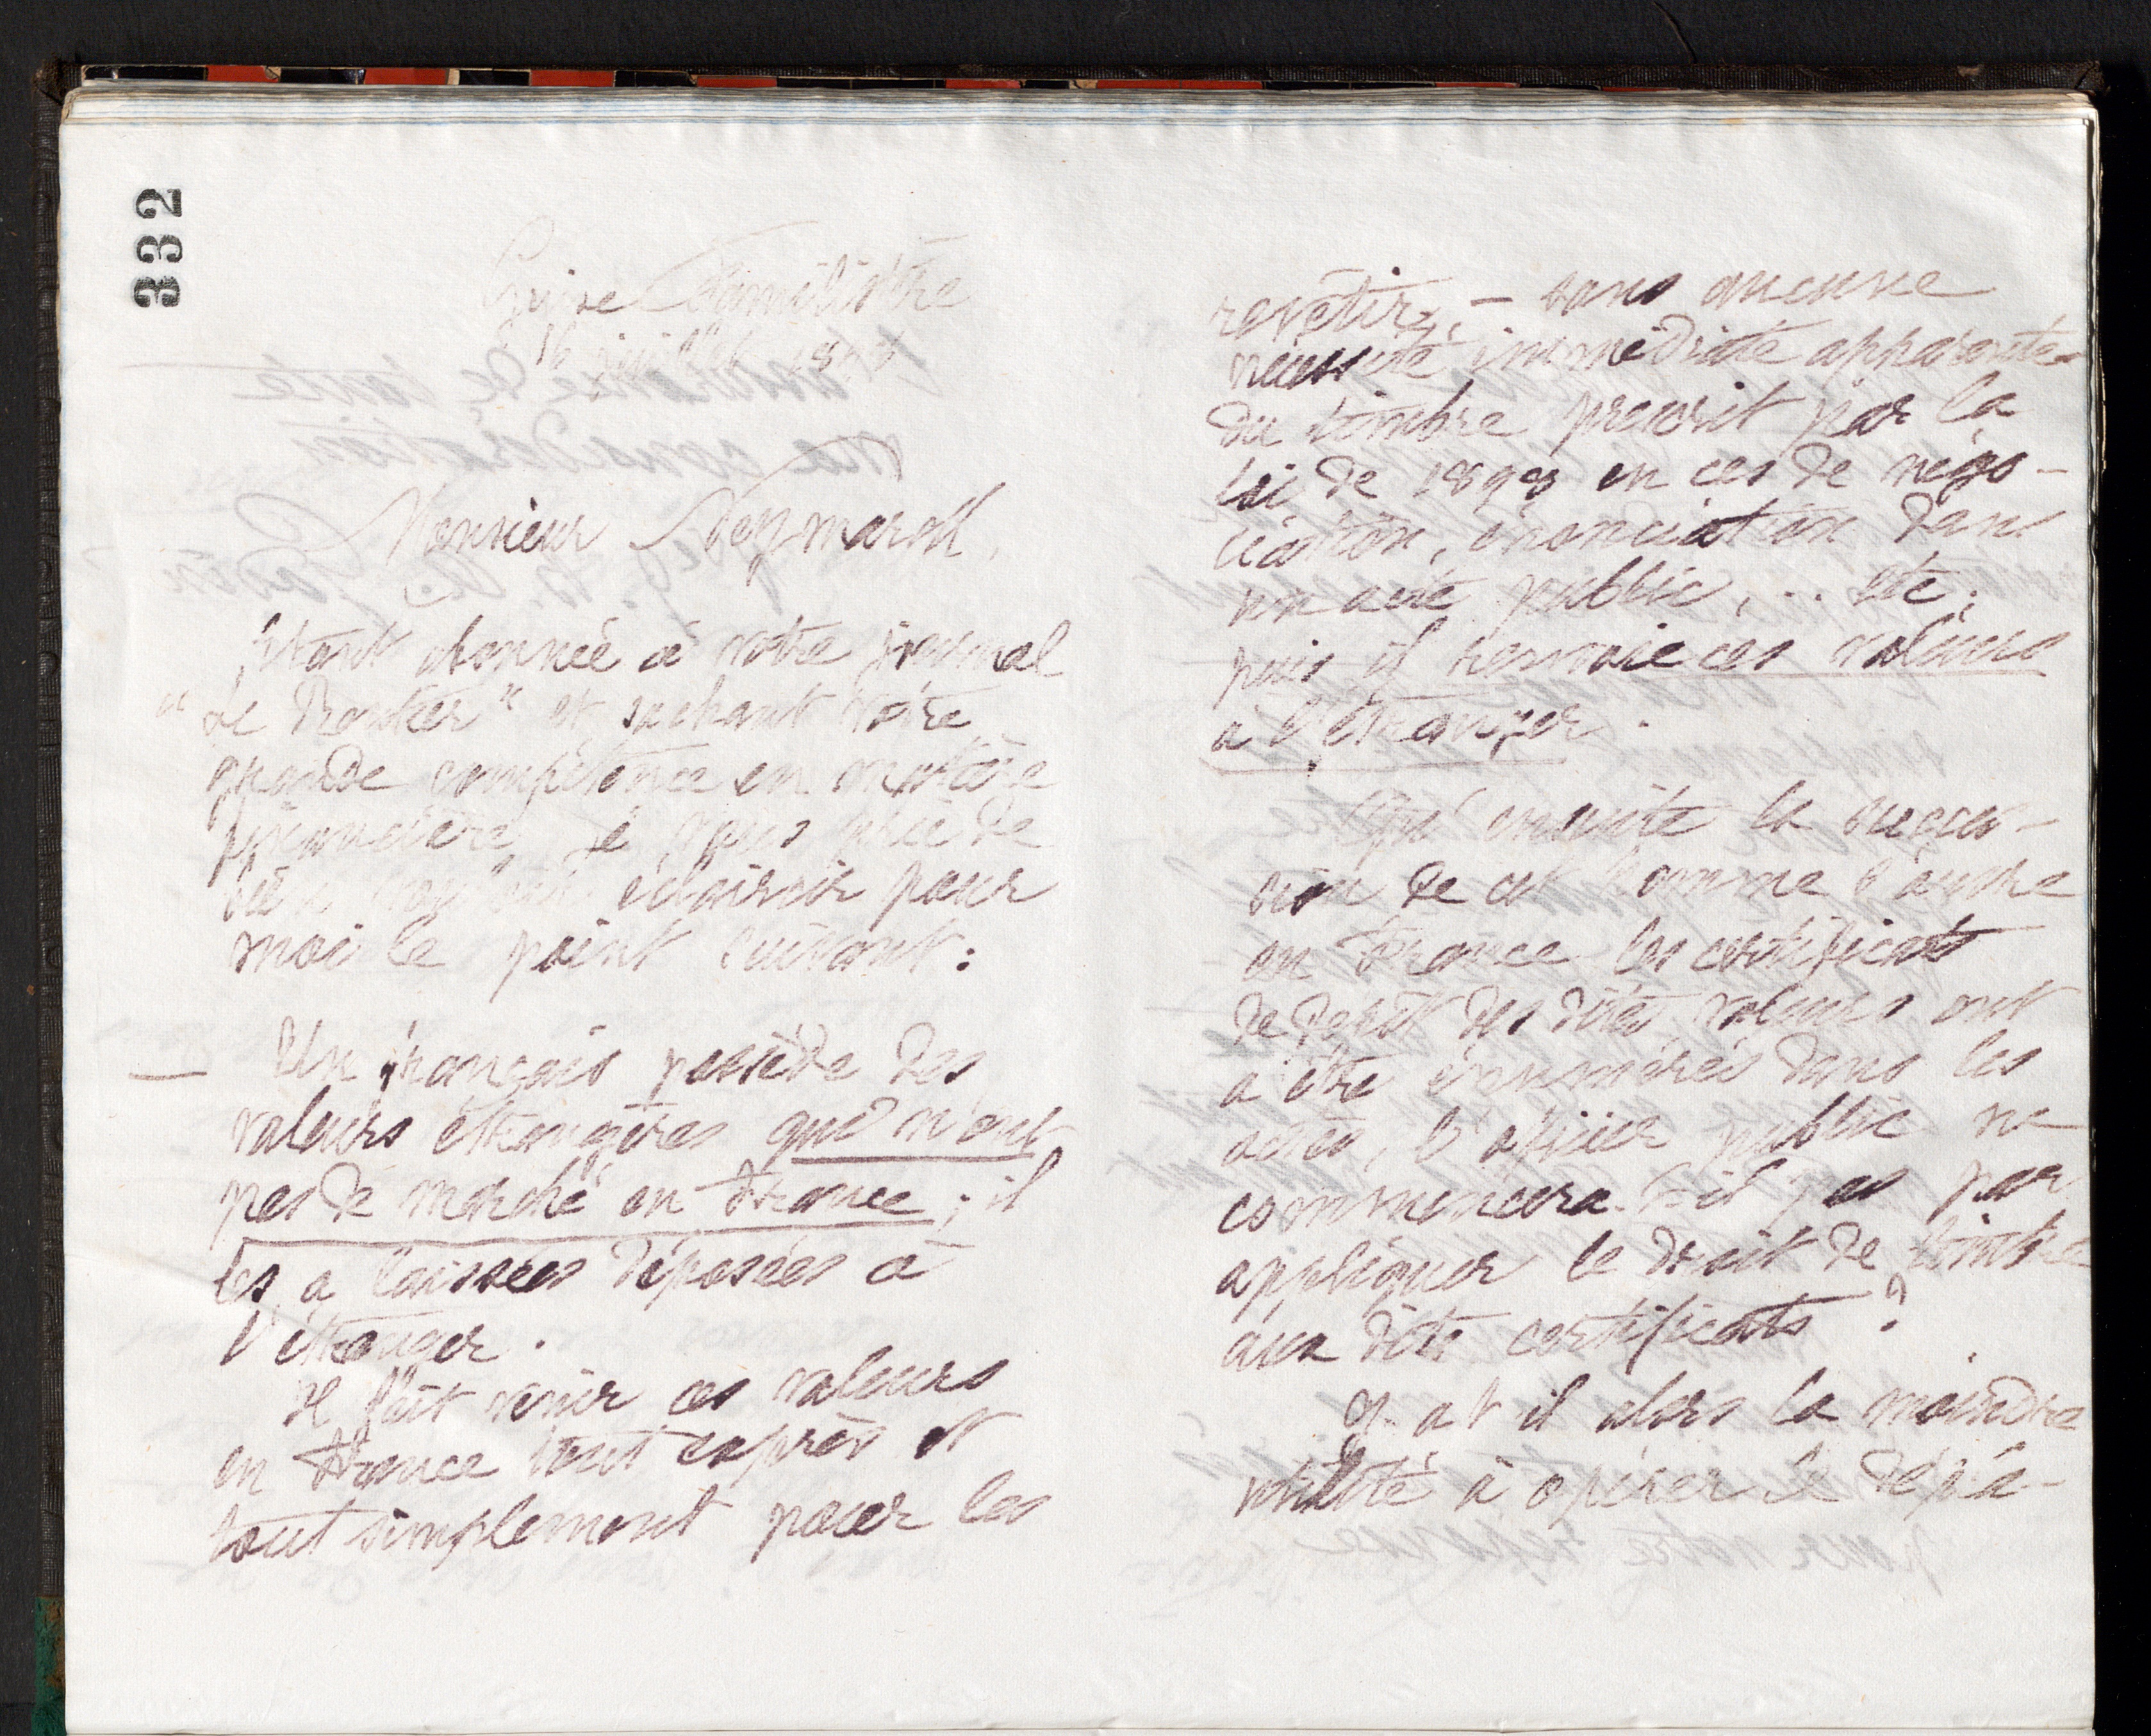 332
Guise Familistère
16 juillet 18
Monsieur Neymarck,
Étant abonnée à votre journal
"Le Rentier" et sachant votre
grande compétence en matière
financière je vous prie de
bien vouloir éclaircir pour
moi le point suivant :
— Un français possède des
valeurs étrangères qui n'ont
pas de marché en France ; il
les a laissées déposées à
l'étranger.
Il fait venir ces valeurs
en France tout exprès et
tout simplement pour les
revêtir, - sans aucune
nécessité immédiate apparente -
du timbre prescrit par la
loi de 1898 en cas de négo-
ciation, énonciation dans
un acte public, ... etc.
puis il renvoie ces valeurs
à l'étranger.
Qu'ensuite la succes-
sion de cet homme s'ouvre
en France les certificats
de dépôt des dites valeurs ont
à être énumérés dans les
actes, l'officier public ne
commencera-t-il pas par
appliquer le droit de timbre
aux dits certificats ?
Y a t il alors la moindre
utilité à opérer le dépla-